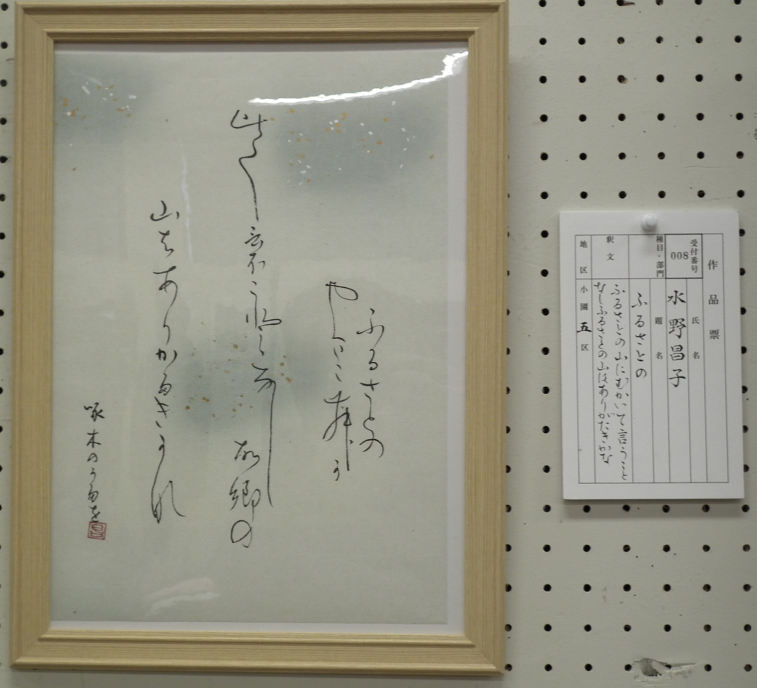 ふるさとの
故郷の
山はありがたきかな
啄木のうたを
作品票
受付番号
008
氏名
水野昌子
種目・部門
題名
ふるさとの
釈文
ふるさとの山にむかいて言うこと
なしふるさとの山はありがたきかな
地区
小園五区